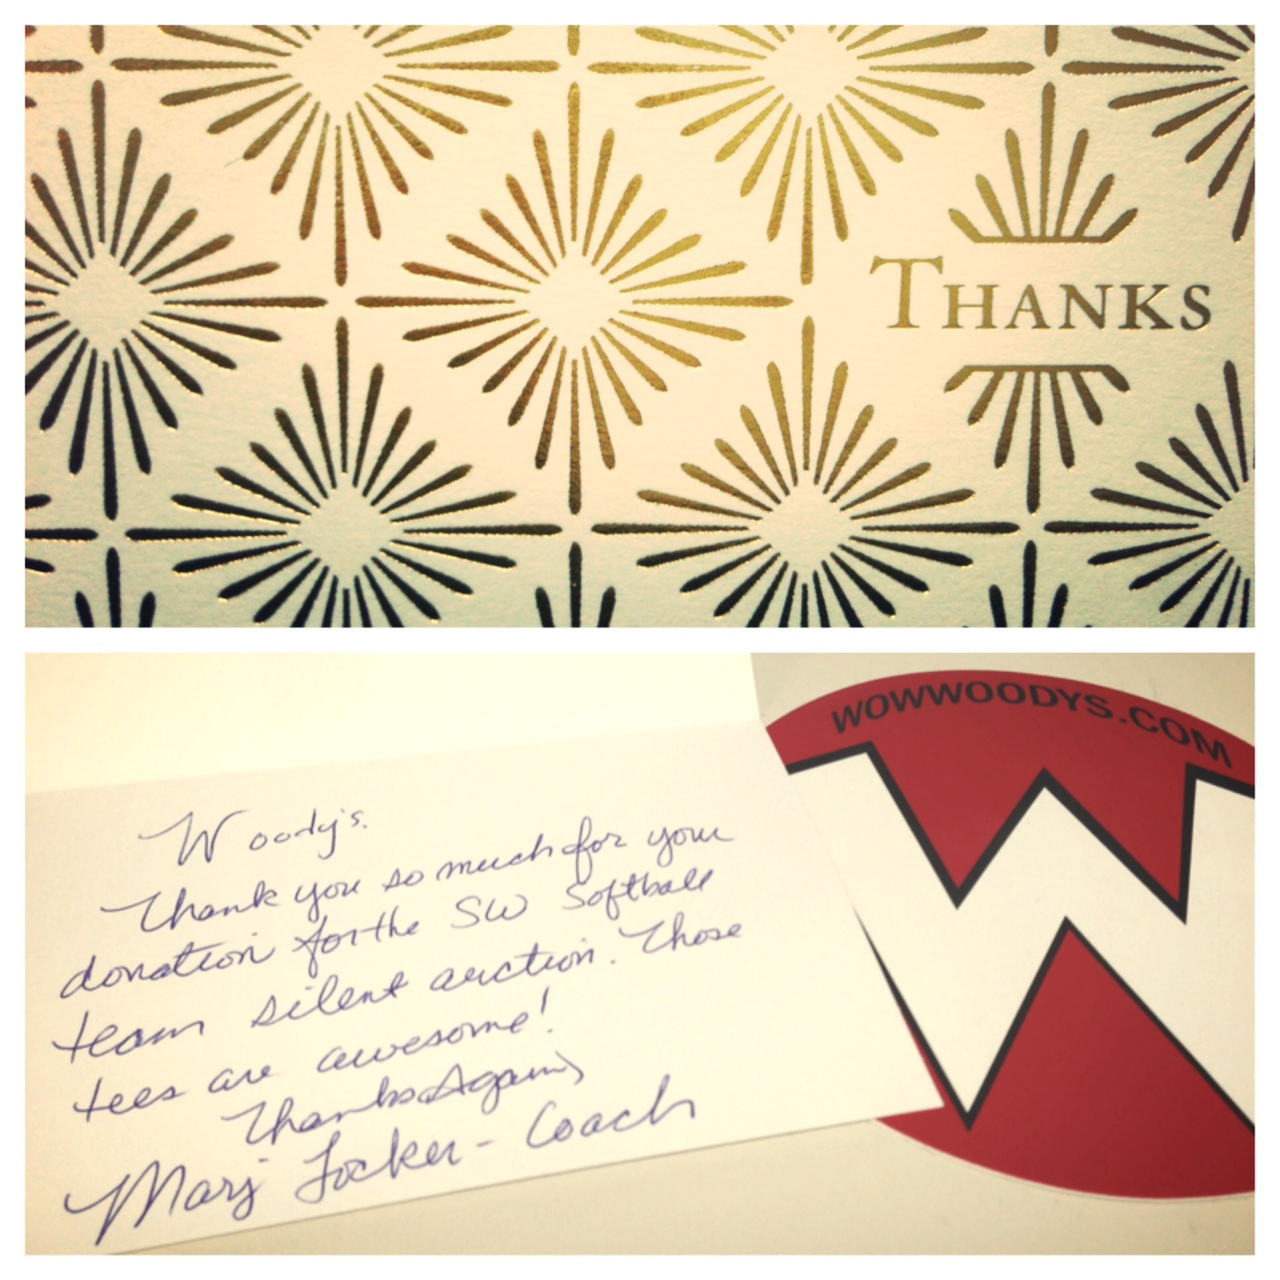 THANKS
WOWWOODYS.COM
Woody's.
Thank you so much for your
donation for the SW Softball
team silent auction. Those
tees are awesome!
Thanks Again,
Marj Locker - Coach